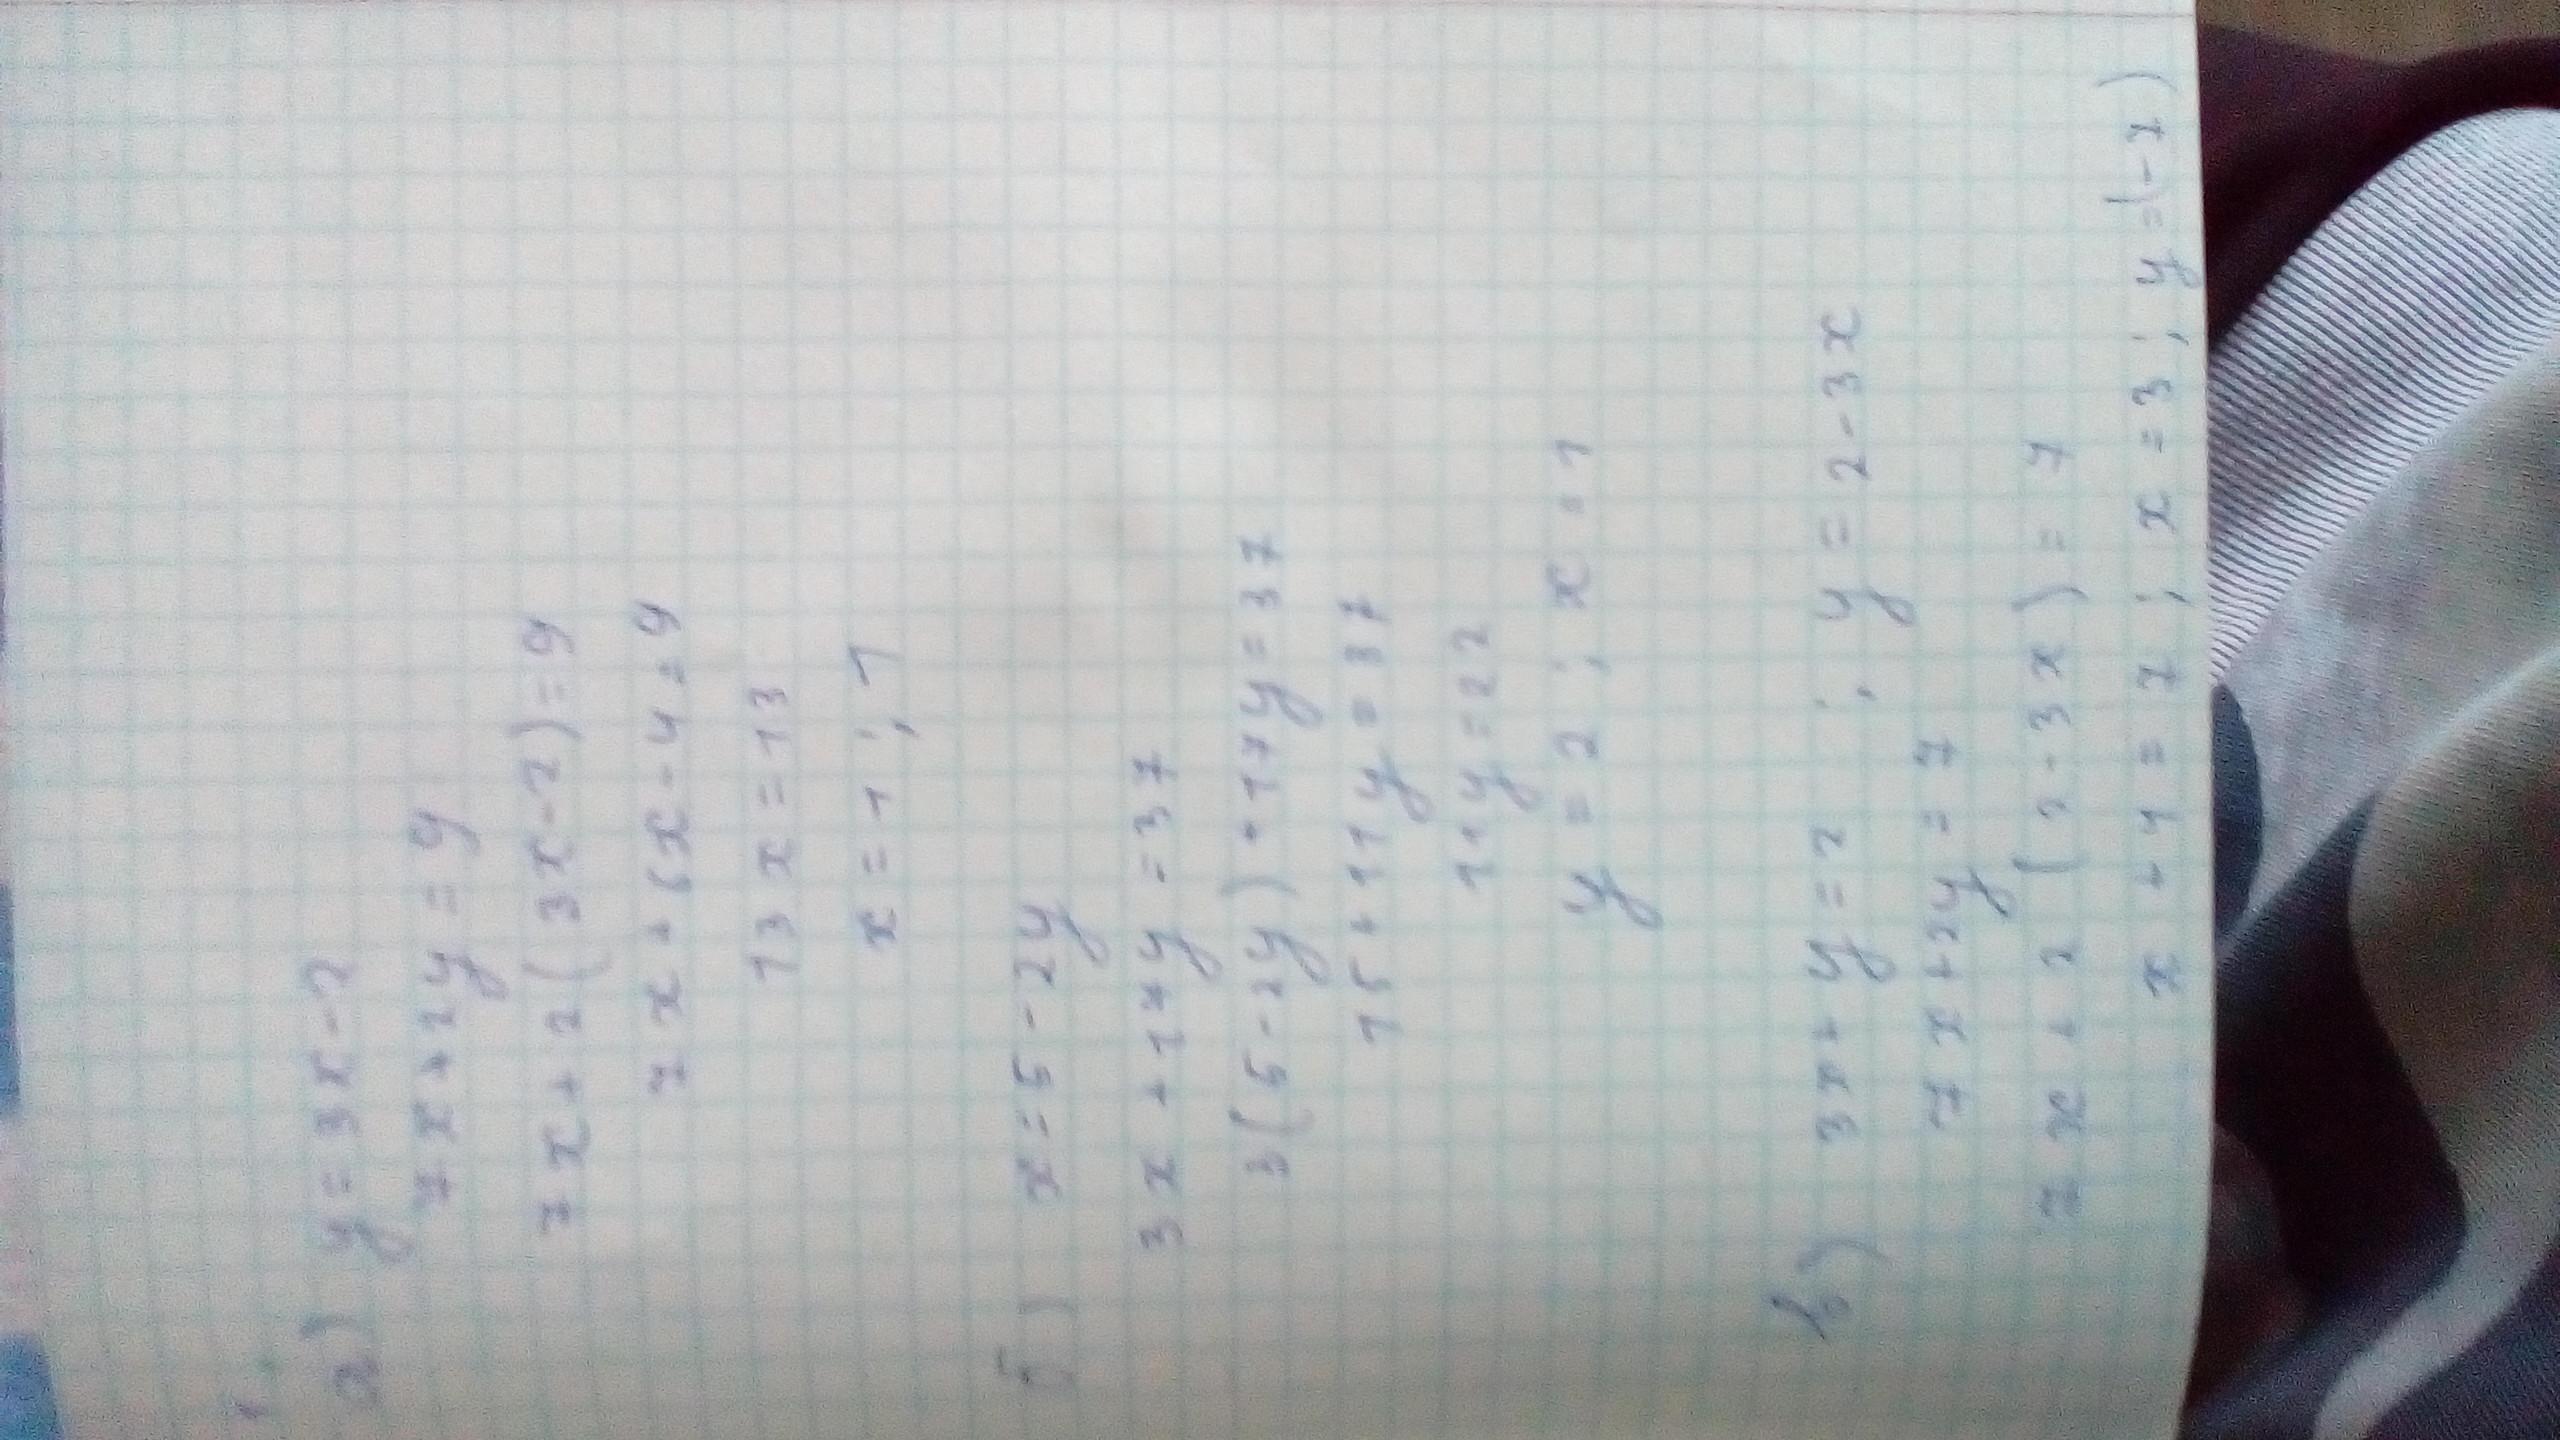 1.
а) y = 3x - 2
7x + 2y = 9
7x + 2(3x - 2) = 9
7x + 6x - 4 = 9
13x = 13
x = 1 ; 1
б) x = 5 - 2y
3x + 17y = 37
3(5 - 2y) + 17y = 37
15 + 11y = 37
11y = 22
y = 2 ; x = 1
в) 3x + y = 2 ; y = 2 - 3x
7x + 2y = 7
7x + 2(2 - 3x) = 7
x + 4 = 7 ; x = 3 ; y = (-7)